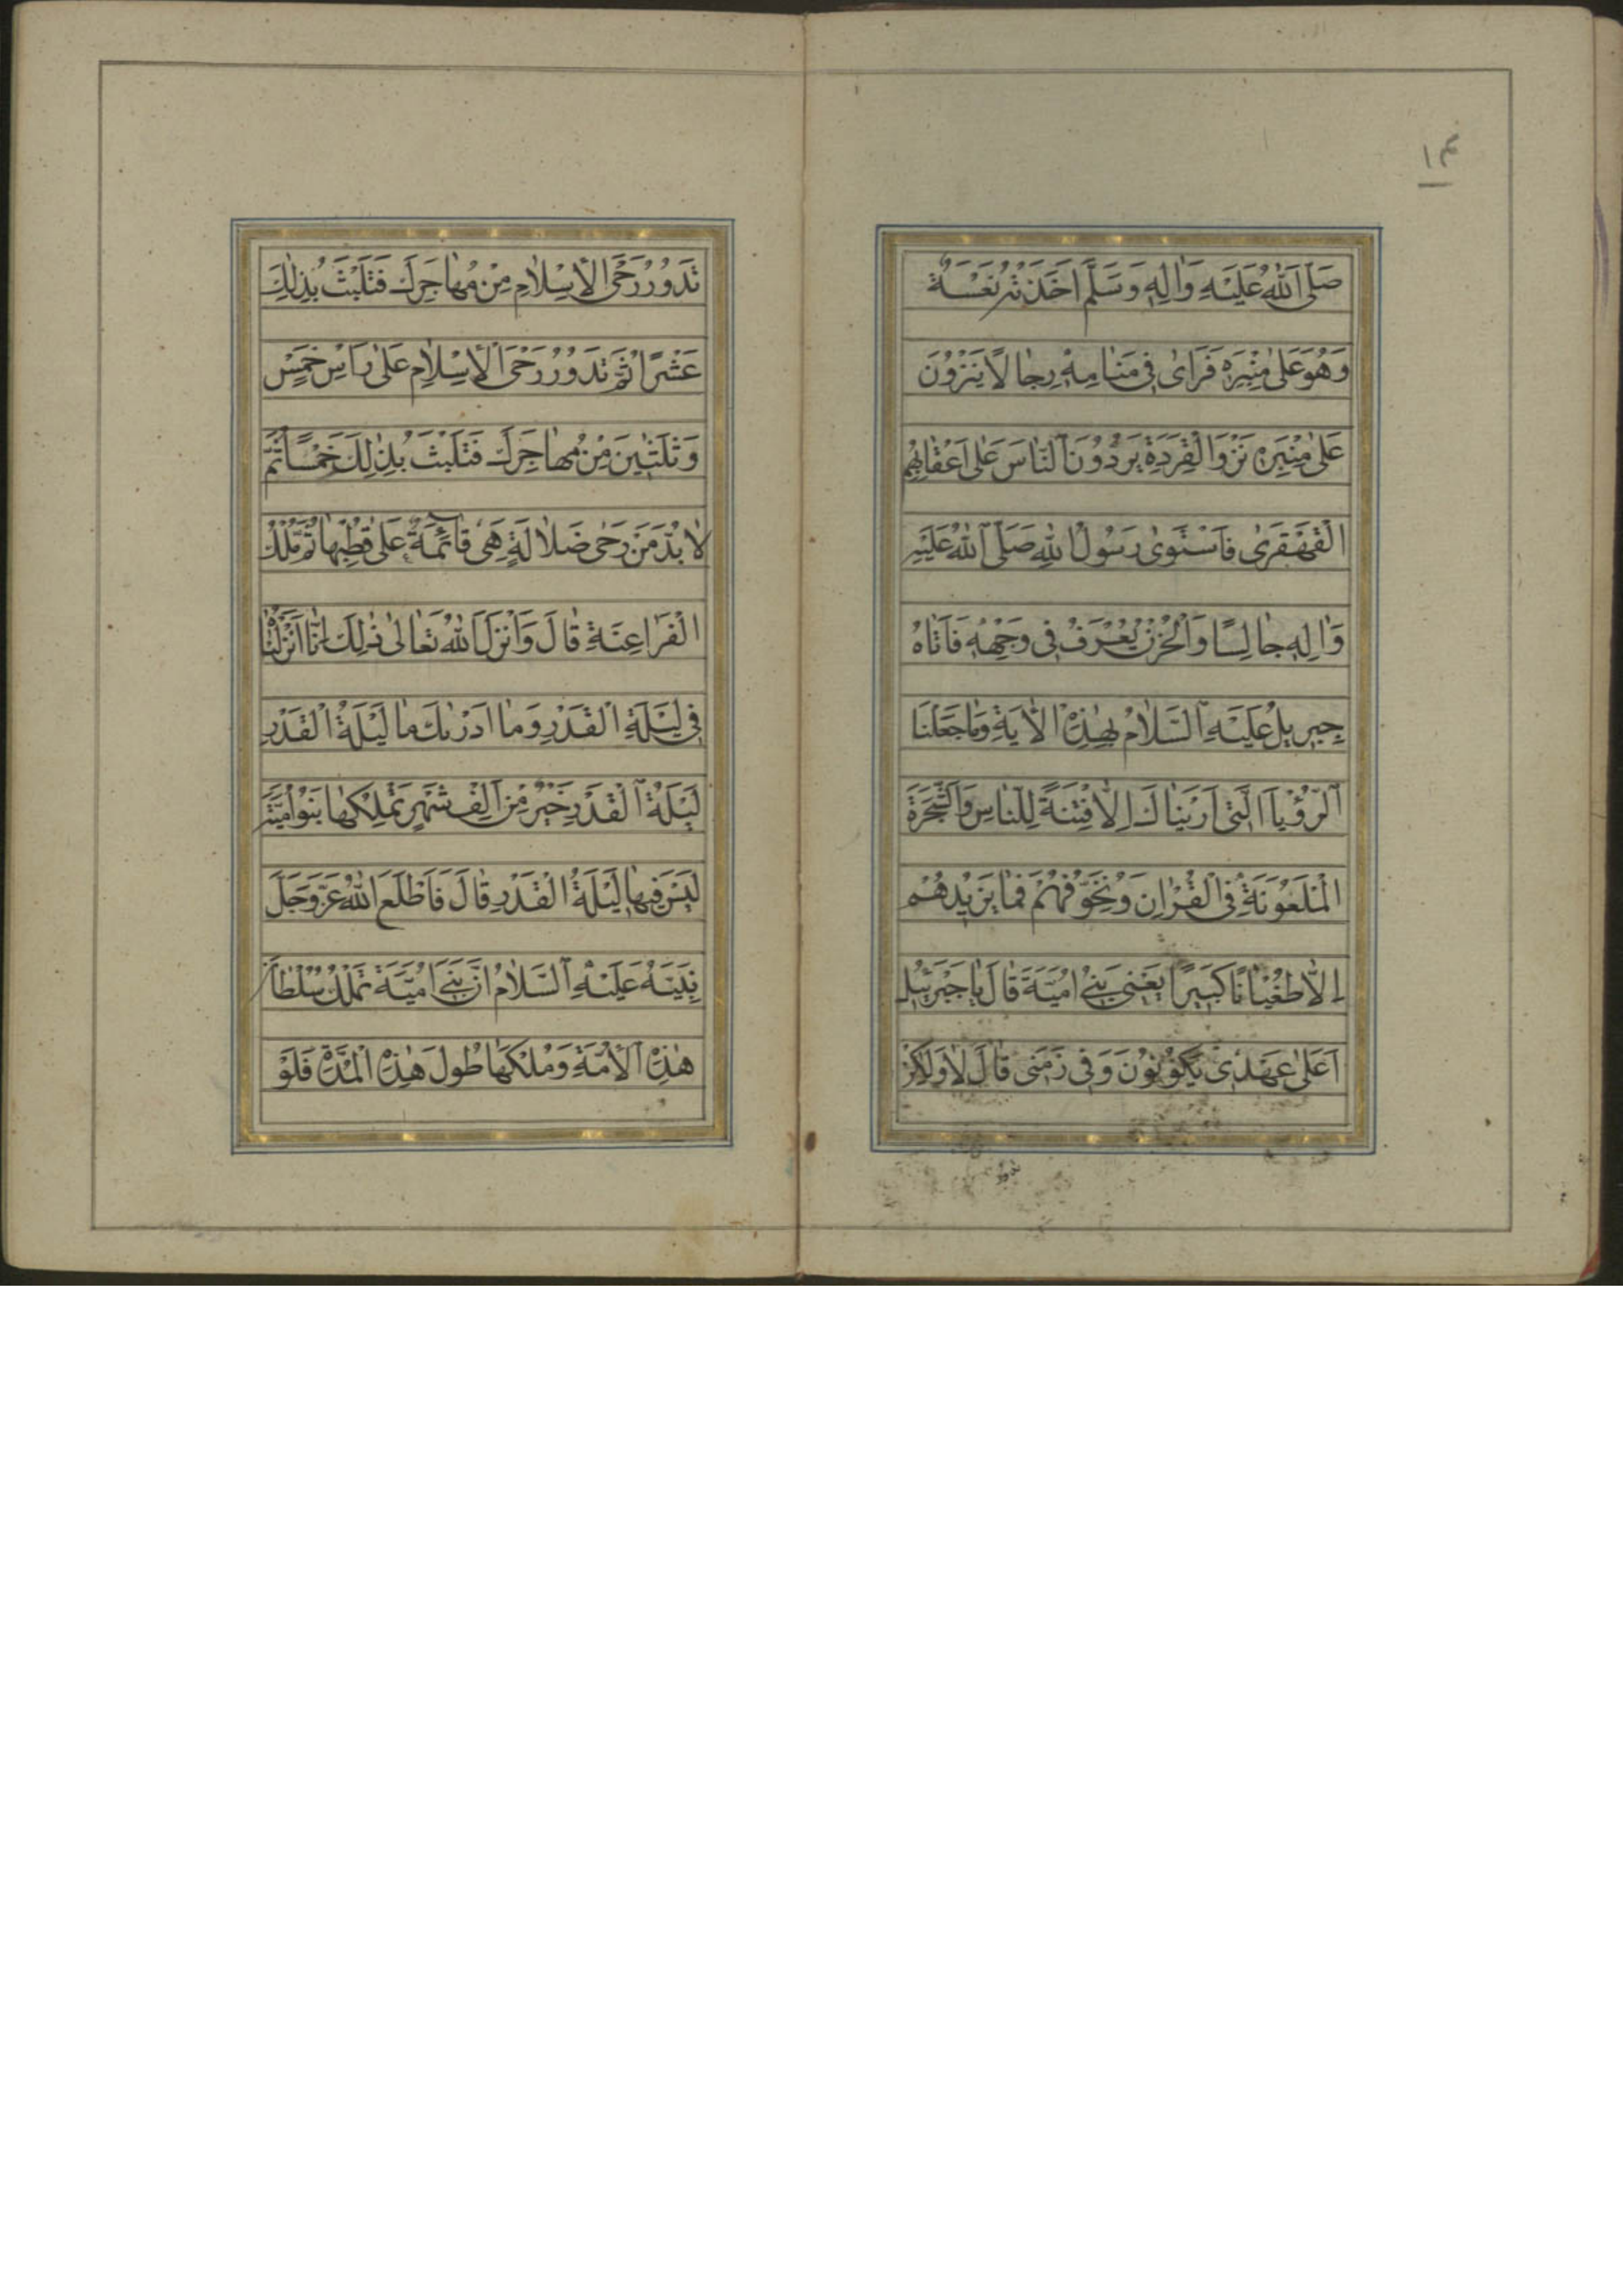 ١٤
صَلَّى اللهُ عَلَيْهِ وَاٰلِهِ وَسَلَّمَ اَخَذَتْهُ نَعْسَةٌ
وَهُوَ عَلٰى مِنْبَرِهِ فَرَاٰى فِى مَنَامِهِ رِجَالًا يَنْزُوْنَ
عَلٰى مِنْبَرِهِ نَزْوَ الْقِرَدَةِ يَرُدُّوْنَ النَّاسَ عَلٰى اَعْقَابِهِمُ
الْقَهْقَرٰى فَاسْتَوٰى رَسُوْلُ اللهِ صَلَّى اللهُ عَلَيْهِ
وَاٰلِهِ جَالِسًا وَالْحُزْنُ يُعْرَفُ فِى وَجْهِهِ فَاَتَاهُ
جِبْرِيلُ عَلَيْهِ السَّلَامُ بِهٰذِهِ الْاٰيَةِ وَمَا جَعَلْنَا
الرُّؤْيَا الَّتِى اَرَيْنَاكَ اِلَّا فِتْنَةً لِلنَّاسِ وَالشَّجَرَةَ
الْمَلْعُوْنَةَ فِى الْقُرْاٰنِ وَنُخَوِّفُهُمْ فَمَا يَزِيْدُهُمْ
اِلَّا طُغْيَانًا كَبِيرًا يَعْنِى بَنِى اُمَيَّةَ قَالَ يَا جَبْرَئِيلُ
اَعَلٰى عَهْدِى يَكُوْنُوْنَ وَفِى زَمَنِى قَالَ لَا وَلٰكِنْ
تَدُوْرُ رَحَى الْاِسْلَامِ مِنْ مُهَاجَرِكَ فَتَلْبَثُ بِذٰلِكَ
عَشْرًا ثُمَّ تَدُوْرُ رَحَى الْاِسْلَامِ عَلٰى رَاْسِ خَمْسٍ
وَثَلٰثِينَ مِنْ مُهَاجَرِكَ فَتَلْبَثُ بِذٰلِكَ خَمْسًا ثُمَّ
لَا بُدَّ مِنْ رَحٰى ضَلَالَةٍ هِىَ قَائِمَةٌ عَلٰى قُطْبِهَا ثُمَّ مُلْكُ
الْفَرَاعِنَةِ قَالَ وَاَنْزَلَ اللهُ تَعَالٰى فِى ذٰلِكَ اِنَّا اَنْزَلْنَاهُ
فِى لَيْلَةِ الْقَدْرِ وَمَا اَدْرٰىكَ مَا لَيْلَةُ الْقَدْرِ
لَيْلَةُ الْقَدْرِ خَيْرٌ مِنْ اَلْفِ شَهْرٍ تَمْلِكُهَا بَنُوْ اُمَيَّةَ
لَيْسَ فِيهَا لَيْلَةُ الْقَدْرِ قَالَ فَاَطْلَعَ اللهُ عَزَّ وَجَلَّ
نَبِيَّهُ عَلَيْهِ السَّلَامُ اَنَّ بَنِى اُمَيَّةَ تَمْلِكُ سُلْطَانَ
هٰذِهِ الْاُمَّةِ وَمُلْكَهَا طُولَ هٰذِهِ الْمُدَّةِ فَلَوْ